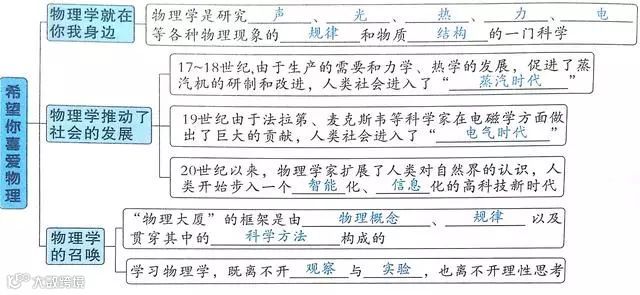 希望你喜爱物理
物理学就在
你我身边
物理学是研究 声 、 光 、 热 、 力 、 电
等各种物理现象的 规律 和物质 结构 的一门科学
物理学推动了
社会的发展
17~18世纪,由于生产的需要和力学、热学的发展，促进了蒸
汽机的研制和改进，人类社会进入了“ 蒸汽时代 ”
19世纪由于法拉第、麦克斯韦等科学家在电磁学方面做
出了巨大的贡献，人类社会进入了“ 电气时代 ”
20世纪以来，物理学家扩展了人类对自然界的认识，人
类开始步入一个 智能 化、 信息 化的高科技新时代
物理学
的召唤
“物理大厦”的框架是由 物理概念 、 规律 以及
贯穿其中的 科学方法 构成的
学习物理学，既离不开 观察 与 实验 ，也离不开理性思考
大数跨境